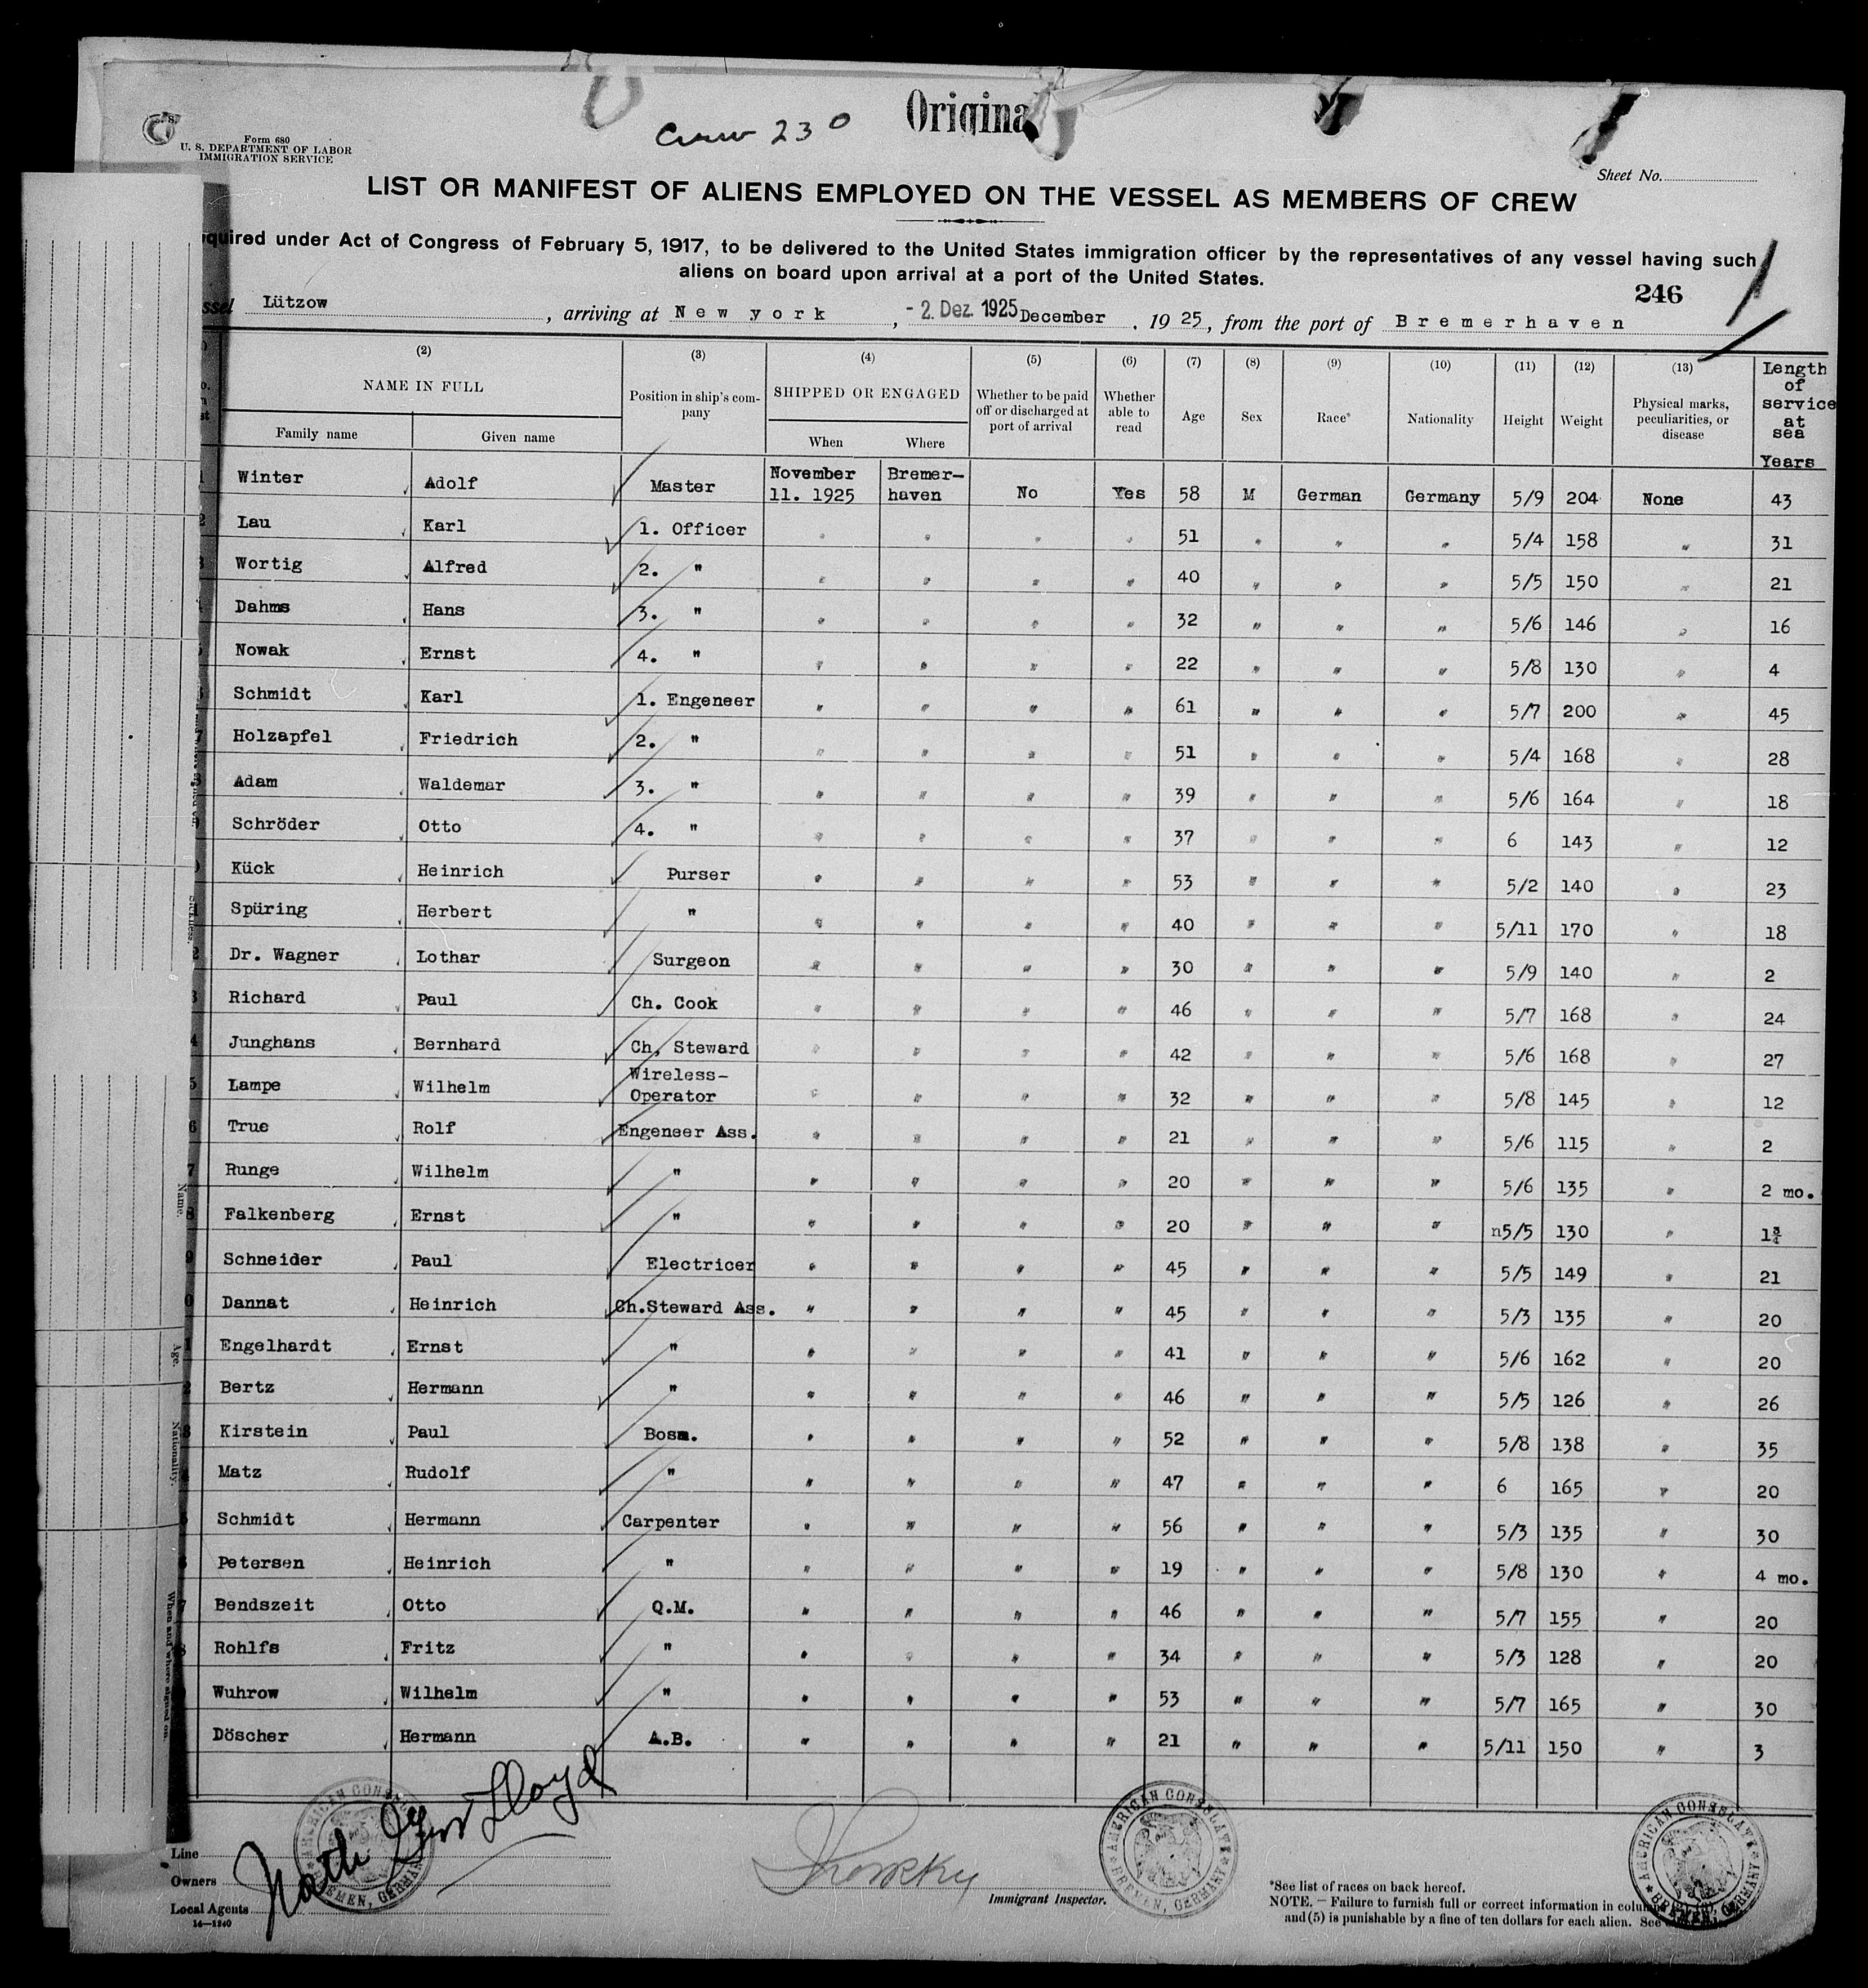 Original
Crew 230
Form 680
U. S. DEPARTMENT OF LABOR
IMMIGRATION SERVICE
Sheet No.
LIST OR MANIFEST OF ALIENS EMPLOYED ON THE VESSEL AS MEMBERS OF CREW
quired under Act of Congress of February 5, 1917, to be delivered to the United States immigration officer by the representatives of any vessel having such
aliens on board upon arrival at a port of the United States.
246
ssel Lützow, arriving at New york, - 2. Dez. 1925 December, 1925, from the port of Bremerhaven
(2) (3) (4) (5) (6) (7) (8) (9) (10) (11) (12) (13)
NAME IN FULL Position in ship's company SHIPPED OR ENGAGED Whether to be paid off or discharged at port of arrival Whether able to read Age Sex Race* Nationality Height Weight Physical marks, peculiarities, or disease Length of service at sea
Family name Given name When Where Years
Winter Adolf Master November 11. 1925 Bremer-haven No Yes 58 M German Germany 5/9 204 None 43
Lau Karl 1. Officer " " " " 51 " " " 5/4 158 " 31
Wortig Alfred 2. " " " " " 40 " " " 5/5 150 " 21
Dahms Hans 3. " " " " " 32 " " " 5/6 146 " 16
Nowak Ernst 4. " " " " " 22 " " " 5/8 130 " 4
Schmidt Karl 1. Engeneer " " " " 61 " " " 5/7 200 " 45
Holzapfel Friedrich 2. " " " " " 51 " " " 5/4 168 " 28
Adam Waldemar 3. " " " " " 39 " " " 5/6 164 " 18
Schröder Otto 4. " " " " " 37 " " " 6 143 " 12
Kück Heinrich Purser " " " " 53 " " " 5/2 140 " 23
Spüring Herbert " " " " " 40 " " " 5/11 170 " 18
Dr. Wagner Lothar Surgeon " " " " 30 " " " 5/9 140 " 2
Richard Paul Ch. Cook " " " " 46 " " " 5/7 168 " 24
Junghans Bernhard Ch, Steward " " " " 42 " " " 5/6 168 " 27
Lampe Wilhelm Wireless-Operator " " " " 32 " " " 5/8 145 " 12
True Rolf Engeneer Ass. " " " " 21 " " " 5/6 115 " 2
Runge Wilhelm " " " " " 20 " " " 5/6 135 " 2 mo.
Falkenberg Ernst " " " " " 20 " " " n5/5 130 " 1¾
Schneider Paul Electricer " " " " 45 " " " 5/5 149 " 21
Dannat Heinrich Ch.Steward Ass. " " " " 45 " " " 5/3 135 " 20
Engelhardt Ernst " " " " " 41 " " " 5/6 162 " 20
Bertz Hermann " " " " " 46 " " " 5/5 126 " 26
Kirstein Paul Bosm. " " " " 52 " " " 5/8 138 " 35
Matz Rudolf " " " " " 47 " " " 6 165 " 20
Schmidt Hermann Carpenter " " " " 56 " " " 5/3 135 " 30
Petersen Heinrich " " " " " 19 " " " 5/8 130 " 4 mo.
Bendszeit Otto Q.M. " " " " 46 " " " 5/7 155 " 20
Rohlfs Fritz " " " " " 34 " " " 5/3 128 " 20
Wuhrow Wilhelm " " " " " 53 " " " 5/7 165 " 30
Döscher Hermann A.B. " " " " 21 " " " 5/11 150 " 3
Name.
Age.
Nationality.
When and where signed on.
Line
Owners
Local Agents
14—1240
North Ger Lloyd
AMERICAN CONSULATE BREMEN, GERMANY
Immigrant Inspector.
AMERICAN CONSULATE BREMEN, GERMANY
*See list of races on back hereof.
NOTE. — Failure to furnish full or correct information in columns
and (5) is punishable by a fine of ten dollars for each alien. See
AMERICAN CONSULATE BREMEN, GERMANY